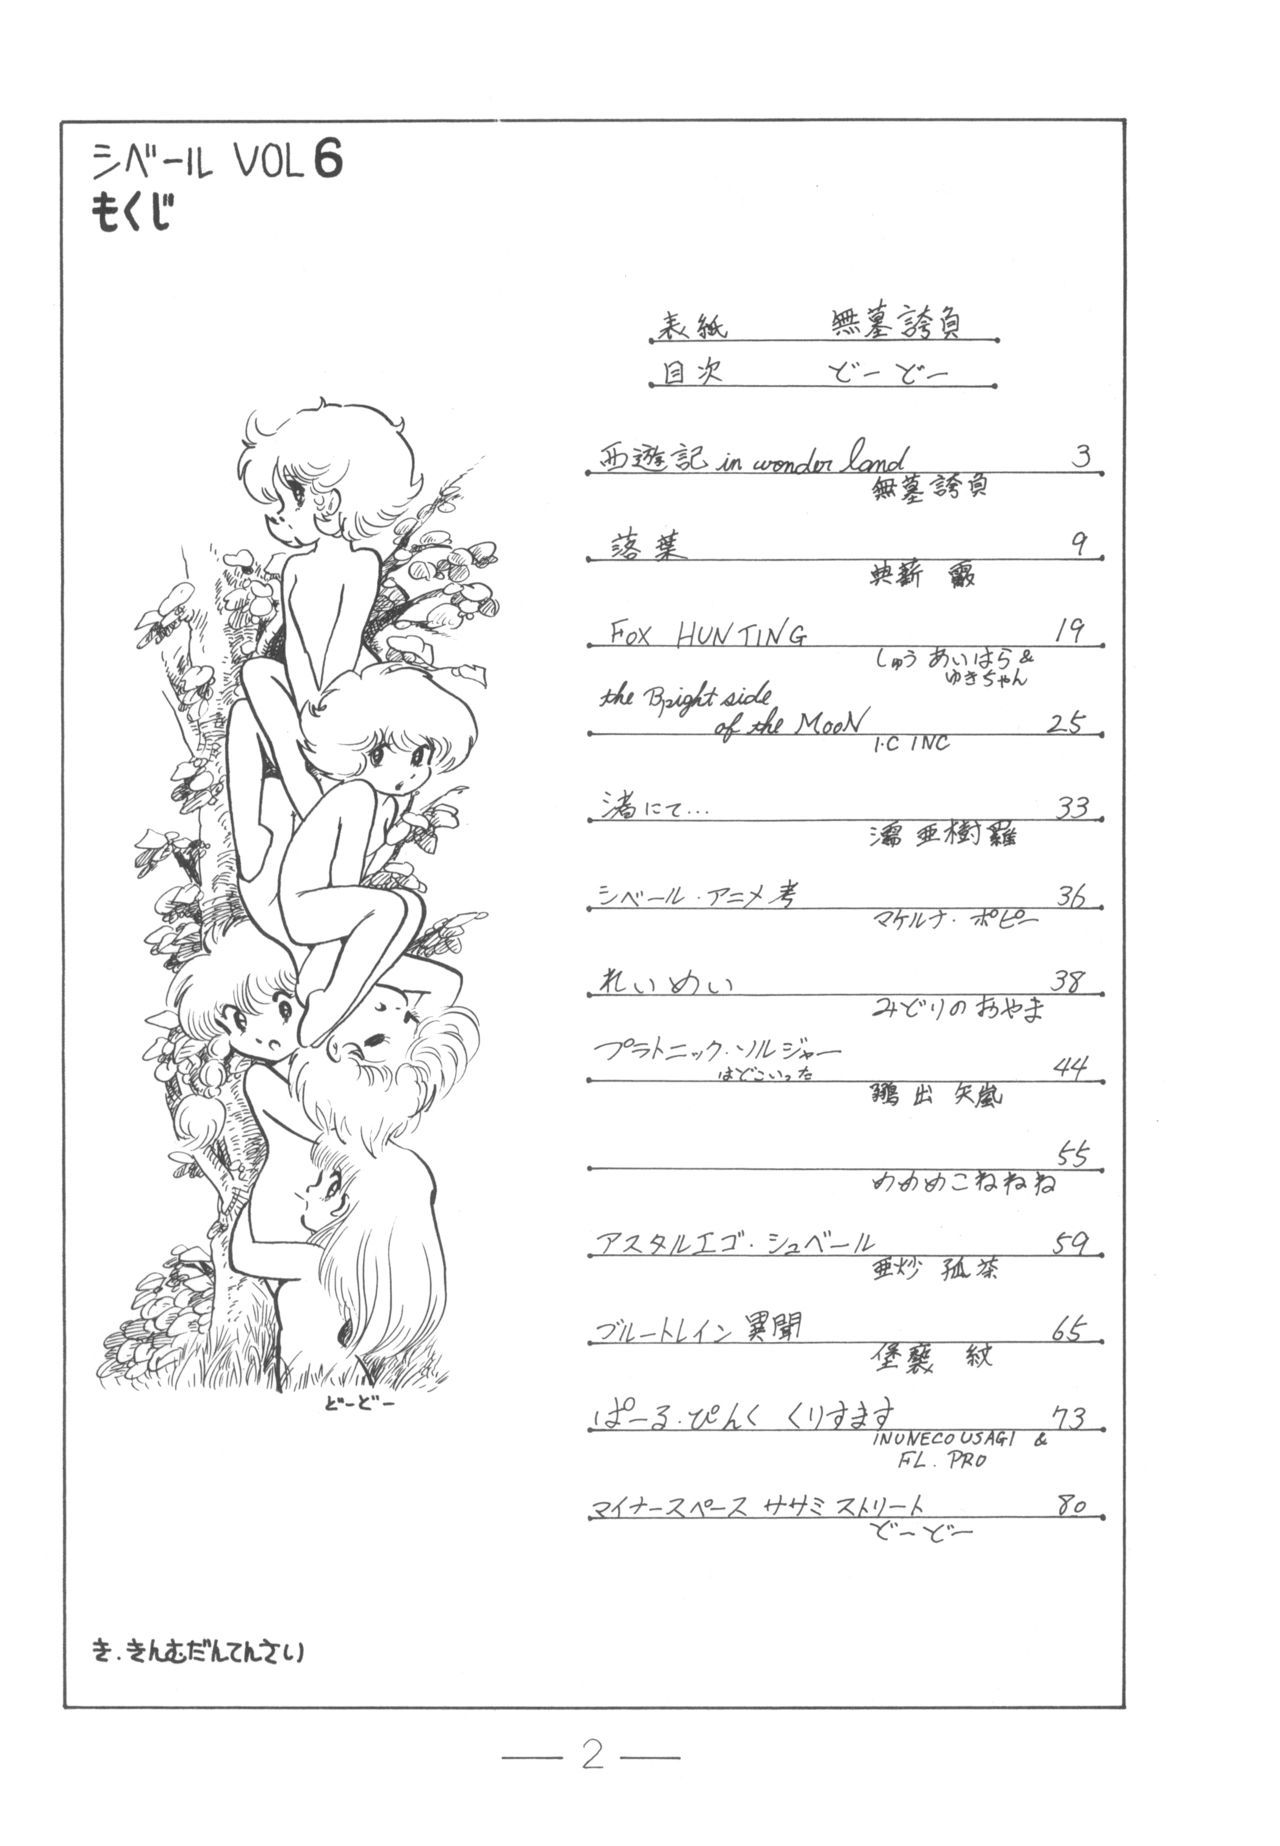 シベール VOL 6
もくじ
表紙 無墓誇負
目次 どーどー
西遊記 in wonder land 3
無墓誇負
落葉 9
典薪
FOX HUNTING 19
しゅう あいはら &
ゆきちゃん
the Bright side
of the MooN 25
I.C INC
渚にて… 33
濡 亜樹羅
シベール・アニメ考 36
マケルナ・ポピー
れいめい 38
みどりの おやま
プラトニック・ソルジャー
はどこいった 44
出 矢嵐
55
めめめこねねね
アスタルエゴ・シュベール 59
亜炒 孤茶
ブルートレイン異聞 65
紋
ぱーる・ぴんく くりすます 73
INUNECOUSAGI &
FL. PRO
マイナースペース ササミ ストリート 80
どーどー
どーどー
き.きんむだんてんさい
— 2 —